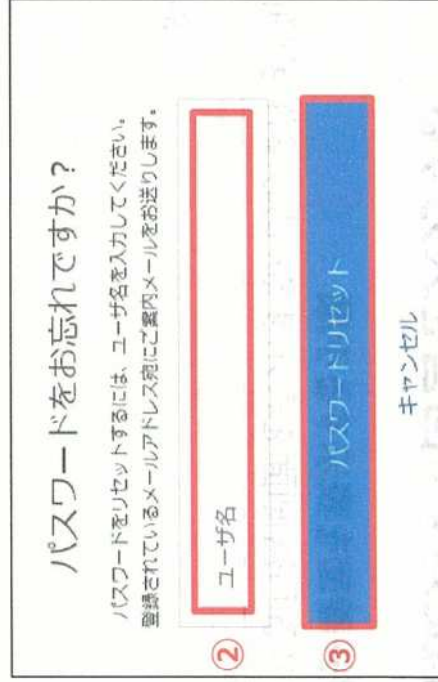 パスワードをお忘れですか？
パスワードをリセットするには、ユーザ名を入力してください。
登録されているメールアドレス宛にご案内メールをお送りします。
② ユーザ名
③ パスワードリセット
キャンセル